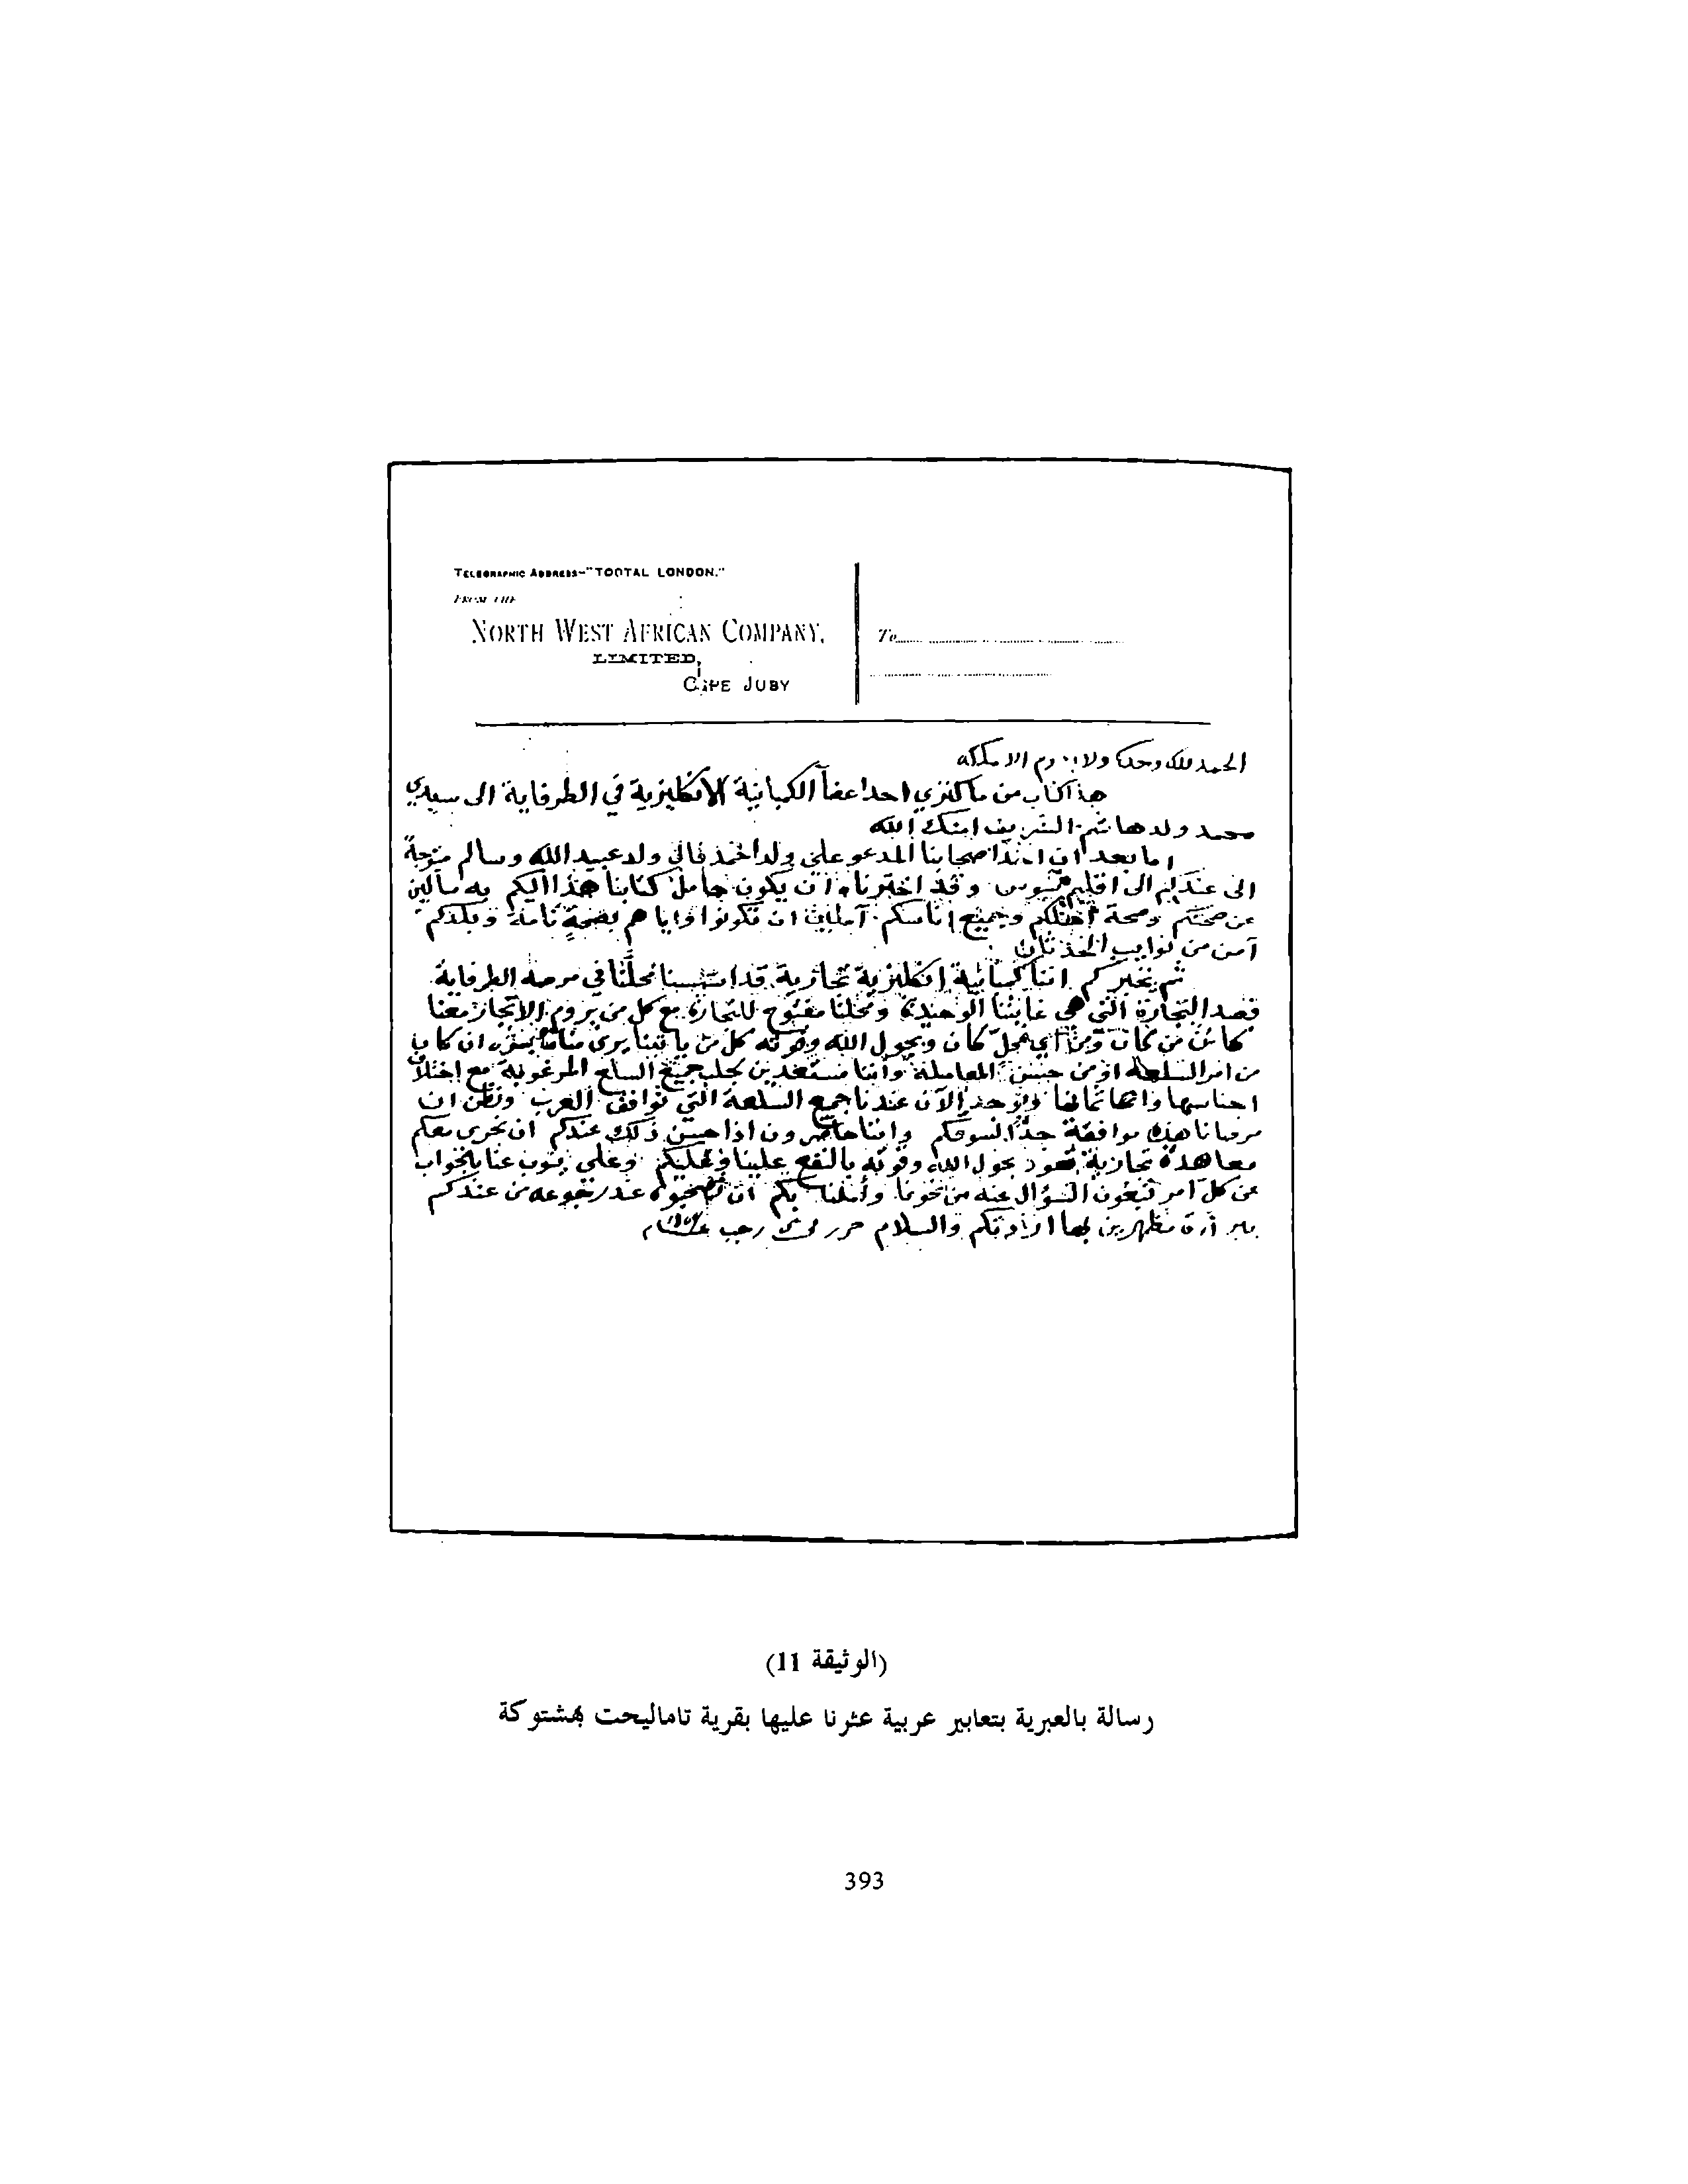 TELEGRAPHIC ADDRESS-"TOOTAL LONDON."
FROM THE
NORTH WEST AFRICAN COMPANY,
LIMITED,
CAPE JUBY
To
الحمد لله وحده ولا يدوم الا ملكه
هذا كتاب من ماكنزي احد اعضآ الكبانية الانكليزية في الطرفاية الى سيدي
محمد ولد هاشم الشريف امنك الله
اما بعد ان احد اصحابنا المدعو علي ولد احمد فالي ولد عبيد الله وسالم متوجهً
الى عندكم الى اقليم سوس وقد اخترناه ان يكون حامل كتابنا هذا اليكم به سآلين
عن صحتكم وصحة اهلكم وجميع اناسكم آملين ان تكونوا واياهم بصحةٍ تامة وبلدكم
آمن من نوايب الحدثان
ثم نخبركم اننا كبانية انكليزية تجارية قد اسسنا محلنا في مرصة الطرفاية
قصد التجارة التي هي غايتنا الوحيدة ومحلنا مفتوح للتجارة مع كل من يروم الاتجار معنا
كائن من كان ومن اي محلٍ كان وبحول الله وقوته كل من ياتينا يرى منا ما يسره ان كان
من امر السلعة او من حسن المعاملة واننا مستعدين لجلب جميع السلع المرغوبة مع اختلاف
اجناسها واثمانها ويوجد الآن عندنا جميع السلعة التي توافق العرب ونظن ان
مرصانا هذه موافقة جدًا لسوقكم واننا حاضرون اذا حسن ذلك عندكم ان نجري معكم
معاهدة تجارية تعود بحول الله وقوته بالنفع علينا وعليكم وعلي ينوب عنا بالجواب
عن كل امر تبغون السؤال عنه من نحونا وأملنا بكم ان تصحبوه عند رجوعه من عندكم
مظهرين بها ارادتكم والسلام حرر في رجب
(الوثيقة 11)
رسالة بالعبرية بتعابير عربية عثرنا عليها بقرية تاماليحت بهشتوكة
393